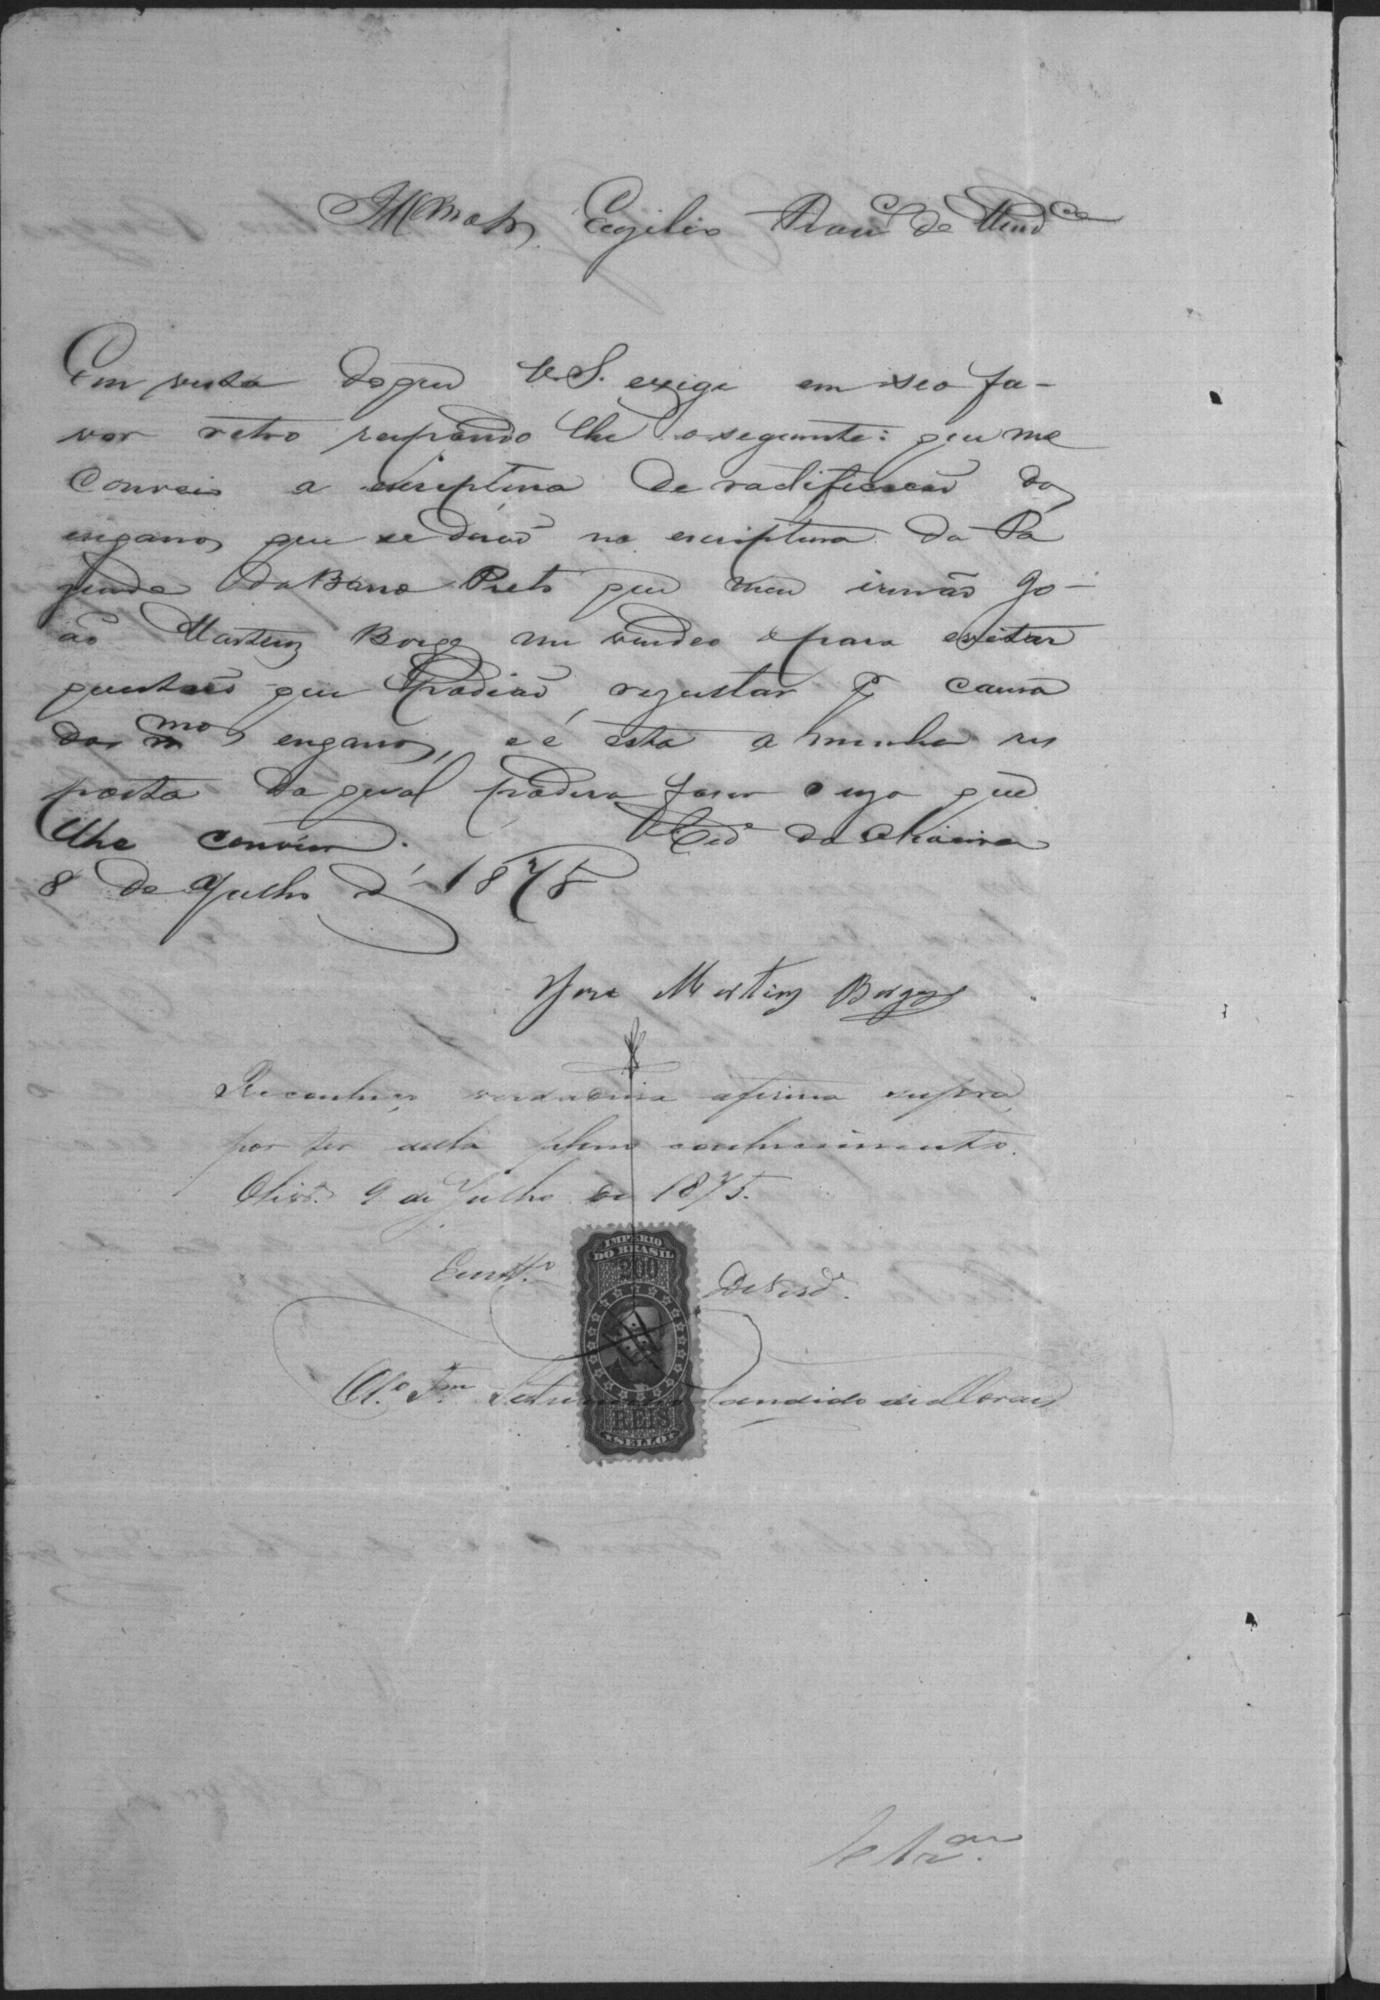 Egilio Franc.co de Mend.ça
Em vista do que V. S. exige em seo fa-
vor retro respondo lhe o seguinte: que me
conveio a escriptura de ratificacão dos
enganos que se derão na escriptura da Fa
zenda da Barra Preta que meu irmão Jo-
ão Martins Borges me vendeo e para evitar
questões que podião rezultar p.r causa
dos mmos enganos, e é esta a minha res
posta da qual poderá fazer o uzo que
lhe convier.
8 de Julho d' 1875
Jose Martins Borges
Reconheço verdadeira a firma supra,
por ter della pleno conhecimento.
Olivr.a 9 de Julho de 1875.
Em tt.o de verd.e
IMPERIO
DO BRASIL
200
REIS
SELLO
Candido de Moraes